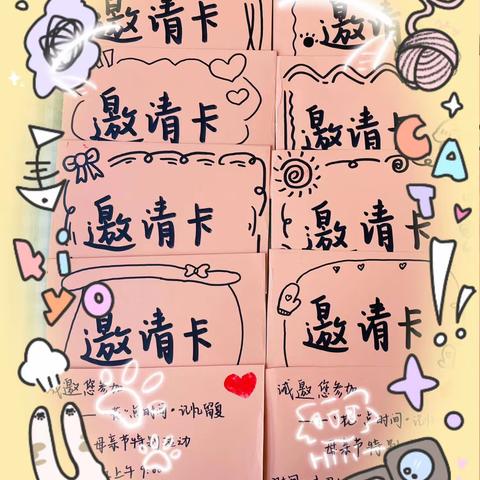 邀请卡
邀请卡
邀请卡
邀请卡
邀请卡
邀请卡
邀请卡
邀请卡
CAT
诚邀您参加
"花"点时间·记忆留复
母亲节特别活动
上午9:00
诚邀您参加
一"花"点时间·记忆
母亲节特别